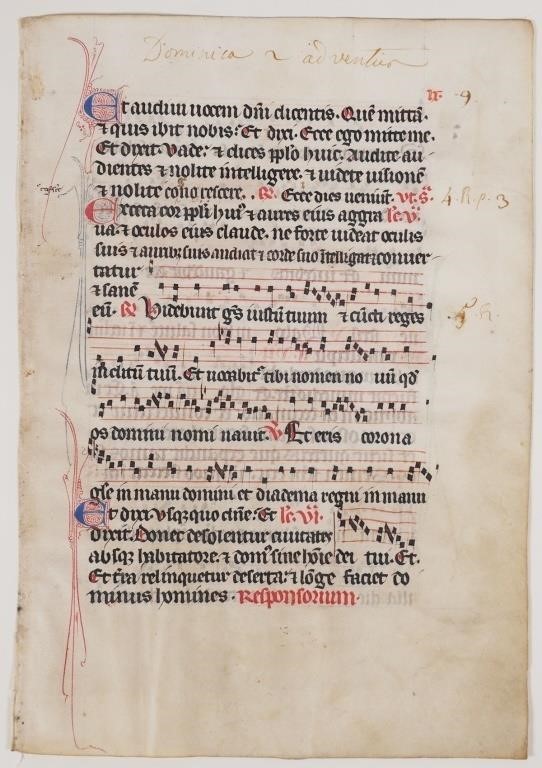 Dominica 2 adventus
Et audivi vocem dñi dicentis. Quē mittā.
⁊ quis ibit nobis: Et dixi. Ecce ego mitte me.
Et dixit. Vade: ⁊ dices pplo huic. Audite au
dientes ⁊ nolite intelligere: ⁊ videte visionē
⁊ nolite cognoscere. R. Ecce dies veniūt. vt. s.
Exceca cor ppli huiꝰ ⁊ aures eius aggra le. v.
va: ⁊ oculos eius claude. ne forte videat oculis
suis ⁊ auribꝰ suis audiat ⁊ corde suo intelligat ⁊ conver-
tatur
⁊ sanē
eū. R. Videbunt gēs iustū tuum ⁊ cūcti reges
inclitū tuū. Et vocabitᵉ tibi nomen no vū qđ
os domini nomi navit. V. Et eris corona
glīe in manu domini et diadema regni in manu
Et dixi. Vsq̨ quo dñe: Et le. vi.
dixit. Donec desolentur civitates
absq̨ habitatore: ⁊ domꝰ sine hoīe dei tui. Et.
Et t̄ra relinquetur deserta: ⁊ lōge faciet do
minus homines. Responsorium.